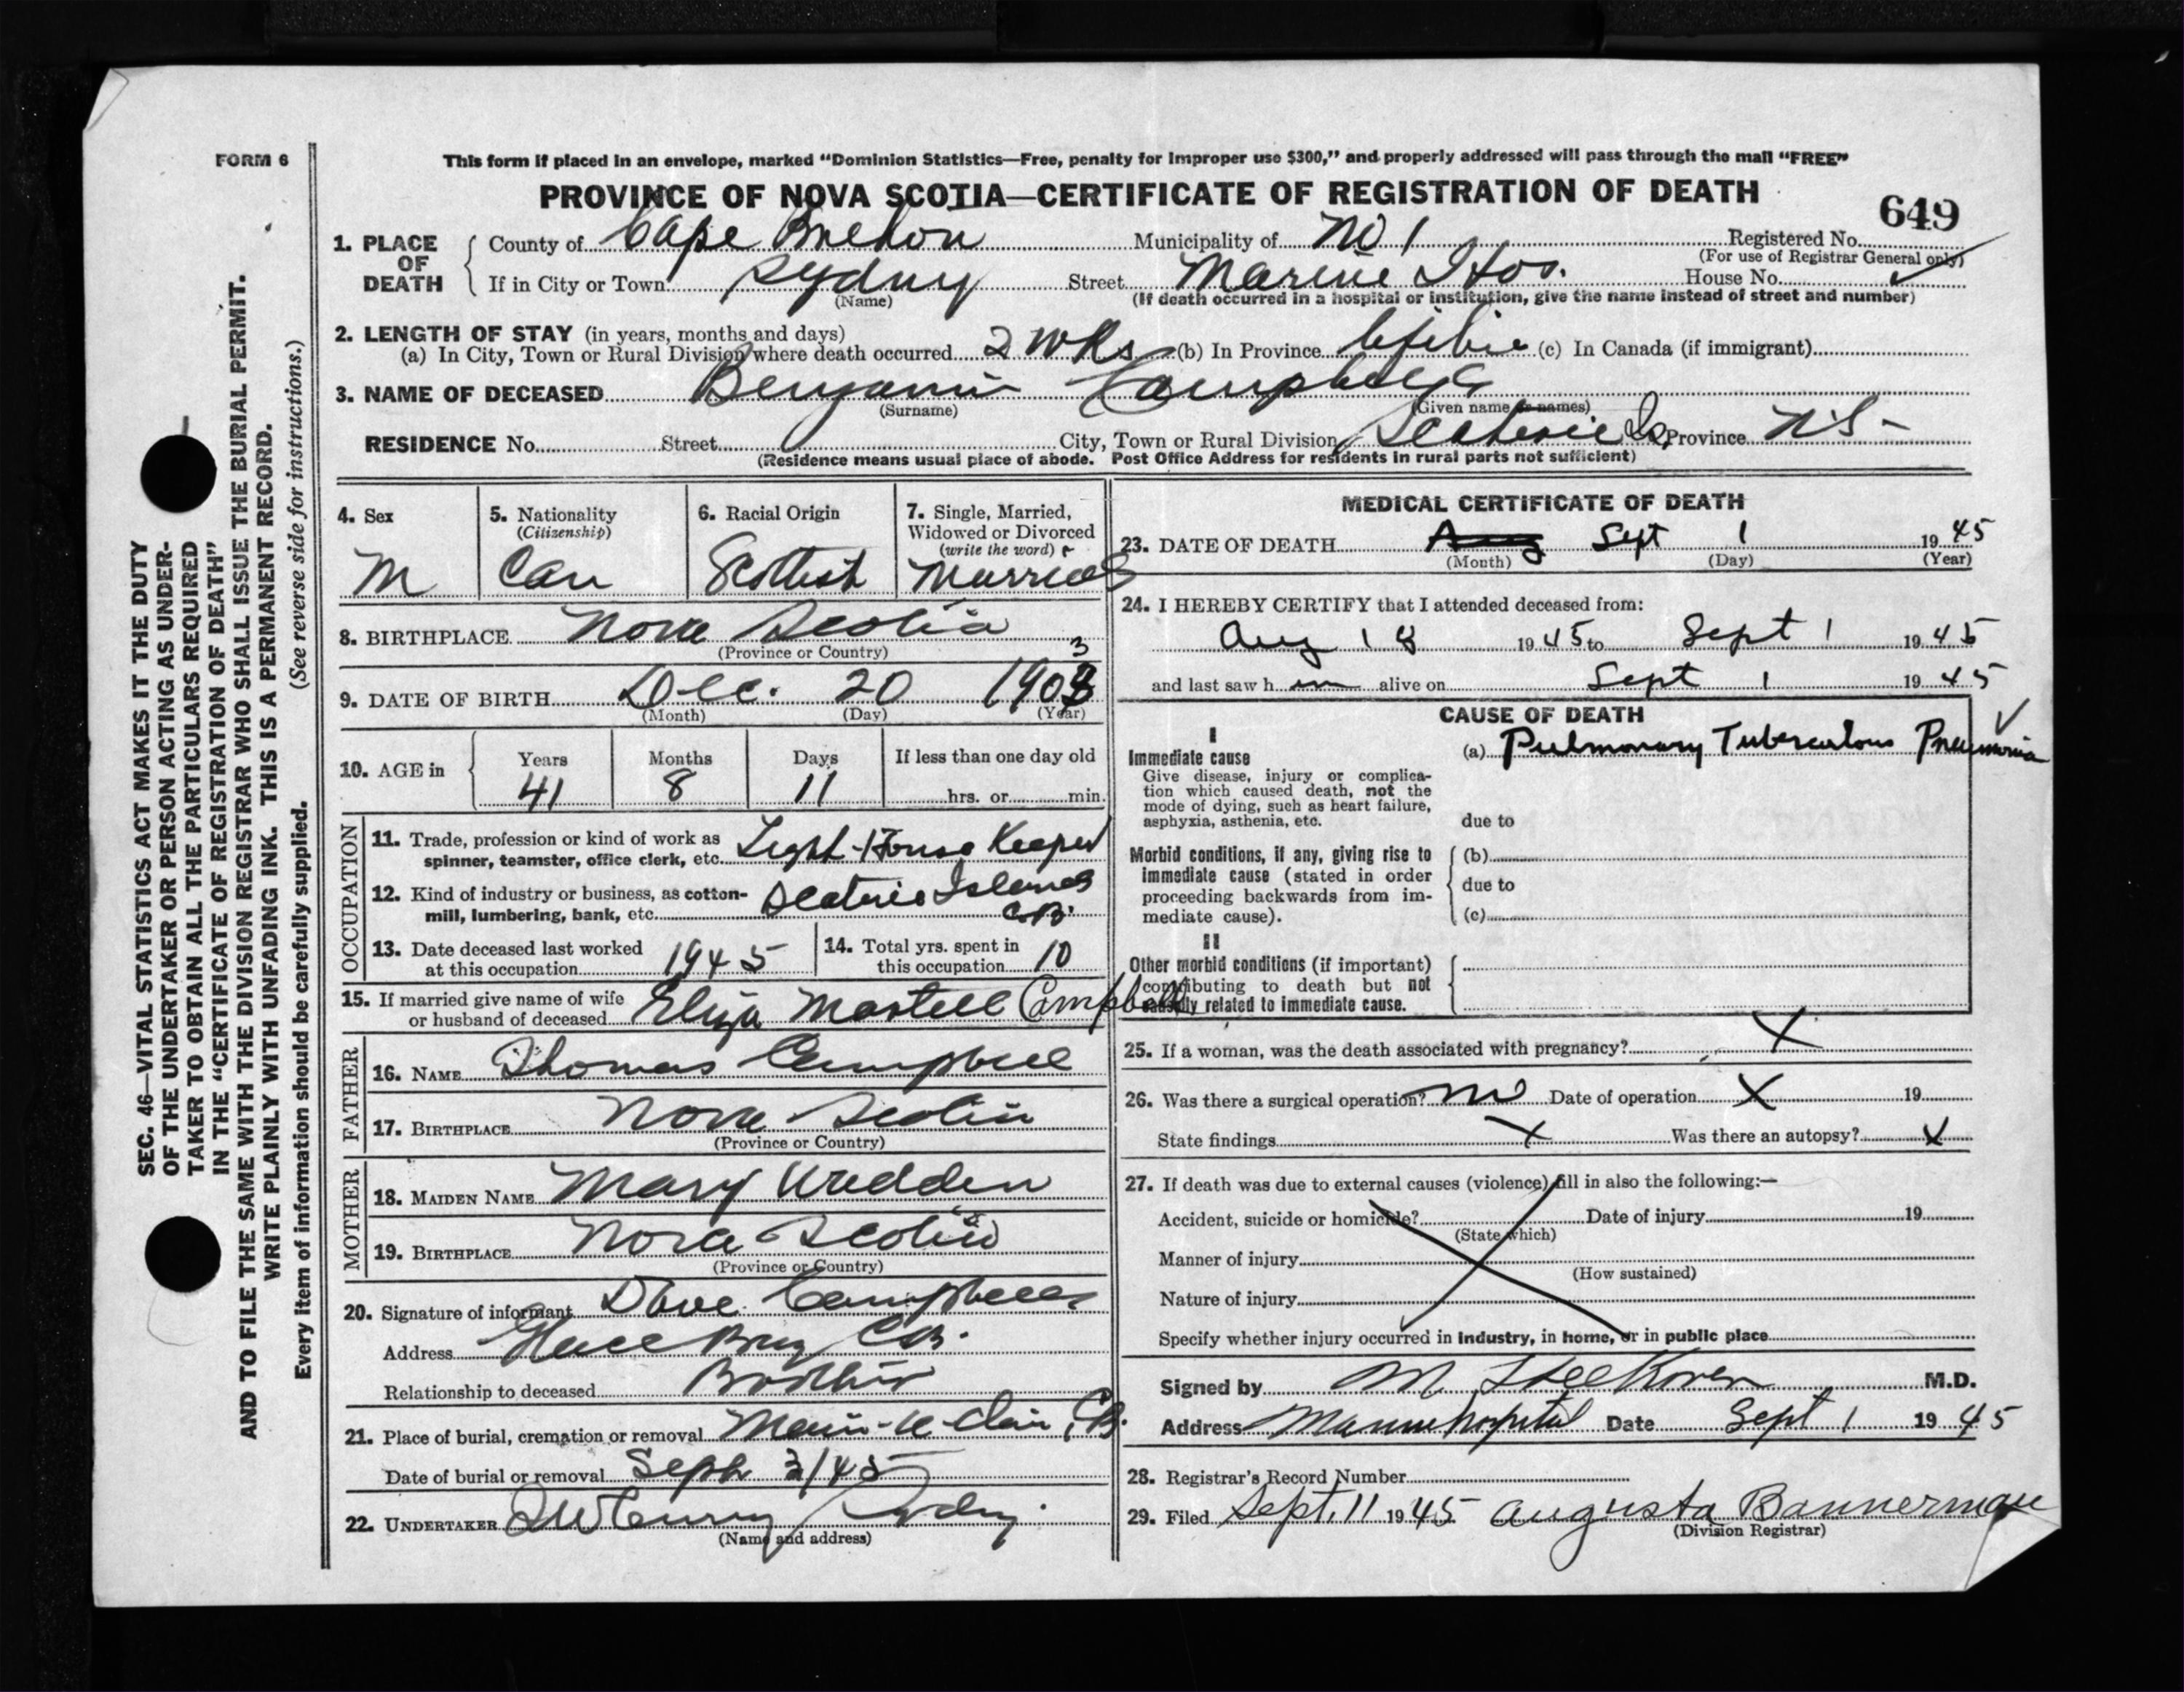 FORM 6
This form if placed in an envelope, marked "Dominion Statistics—Free, penalty for improper use $300," and properly addressed will pass through the mail "FREE"
PROVINCE OF NOVA SCOTIA—CERTIFICATE OF REGISTRATION OF DEATH
649
1. PLACE OF DEATH County of Cape Breton Municipality of No 1 Registered No.
(For use of Registrar General only)
If in City or Town Sydney Street Marine Hos. House No.
(Name) (If death occurred in a hospital or institution, give the name instead of street and number)
2. LENGTH OF STAY (in years, months and days)
(a) In City, Town or Rural Division where death occurred 2 wks (b) In Province Lifetime (c) In Canada (if immigrant)
3. NAME OF DECEASED Benjamin Campbell
(Surname) (Given name or names)
RESIDENCE No. Street City, Town or Rural Division Scaterie Is Province N.S.
(Residence means usual place of abode. Post Office Address for residents in rural parts not sufficient)
4. Sex M
5. Nationality (Citizenship) Can
6. Racial Origin Scottish
7. Single, Married, Widowed or Divorced (write the word) Married
8. BIRTHPLACE Nova Scotia
(Province or Country)
9. DATE OF BIRTH Dec. 20 1903 3
(Month) (Day) (Year)
10. AGE in Years 41 Months 8 Days 11 If less than one day old hrs. or min.
OCCUPATION
11. Trade, profession or kind of work as spinner, teamster, office clerk, etc. Light-House Keeper
12. Kind of industry or business, as cotton-mill, lumbering, bank, etc. Scaterie Island C.B.
13. Date deceased last worked at this occupation 1945
14. Total yrs. spent in this occupation 10
15. If married give name of wife or husband of deceased Eliza Martell Campbell
FATHER
16. NAME Thomas Campbell
17. BIRTHPLACE Nova Scotia
(Province or Country)
MOTHER
18. MAIDEN NAME Mary Wadden
19. BIRTHPLACE Nova Scotia
(Province or Country)
20. Signature of informant Dave Campbell
Address Glace Bay C.B.
Relationship to deceased Brother
21. Place of burial, cremation or removal Main-à-Dieu, C.B.
Date of burial or removal Sept 3/45
22. UNDERTAKER Sydney
(Name and address)
MEDICAL CERTIFICATE OF DEATH
23. DATE OF DEATH Aug Sept 1 1945
(Month) (Day) (Year)
24. I HEREBY CERTIFY that I attended deceased from:
Aug 18 1945 to Sept 1 1945
and last saw him alive on Sept 1 1945
CAUSE OF DEATH
I
Immediate cause
Give disease, injury or complication which caused death, not the mode of dying, such as heart failure, asphyxia, asthenia, etc.
(a) Pulmonary Tuberculous Pneumonia
due to
Morbid conditions, if any, giving rise to immediate cause (stated in order proceeding backwards from immediate cause).
(b)
due to
(c)
II
Other morbid conditions (if important) contributing to death but not causally related to immediate cause.
25. If a woman, was the death associated with pregnancy? X
26. Was there a surgical operation? no Date of operation X 19
State findings X Was there an autopsy? X
27. If death was due to external causes (violence) fill in also the following:—
Accident, suicide or homicide? Date of injury 19
(State which)
Manner of injury
(How sustained)
Nature of injury
Specify whether injury occurred in industry, in home, or in public place
Signed by M. M.D.
Address Marine hospital Date Sept 1 1945
28. Registrar's Record Number
29. Filed Sept. 11 1945 Augusta Bannerman
(Division Registrar)
SEC. 46—VITAL STATISTICS ACT MAKES IT THE DUTY
OF THE UNDERTAKER OR PERSON ACTING AS UNDER-
TAKER TO OBTAIN ALL THE PARTICULARS REQUIRED
IN THE "CERTIFICATE OF REGISTRATION OF DEATH"
AND TO FILE THE SAME WITH THE DIVISION REGISTRAR WHO SHALL ISSUE THE BURIAL PERMIT.
WRITE PLAINLY WITH UNFADING INK. THIS IS A PERMANENT RECORD.
Every item of information should be carefully supplied. (See reverse side for instructions.)